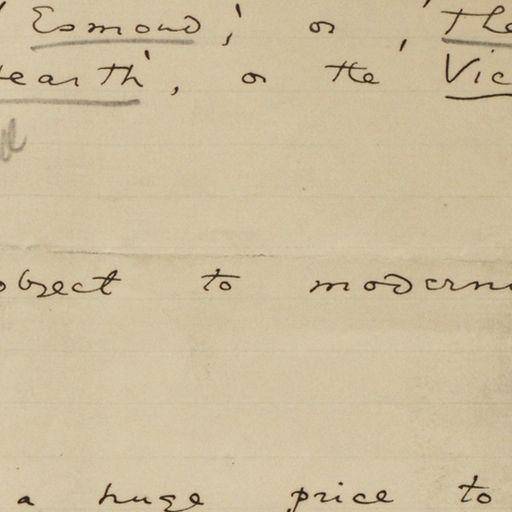 'Esmond', or 'The
earth', or the Vic
object to modern
a huge price to